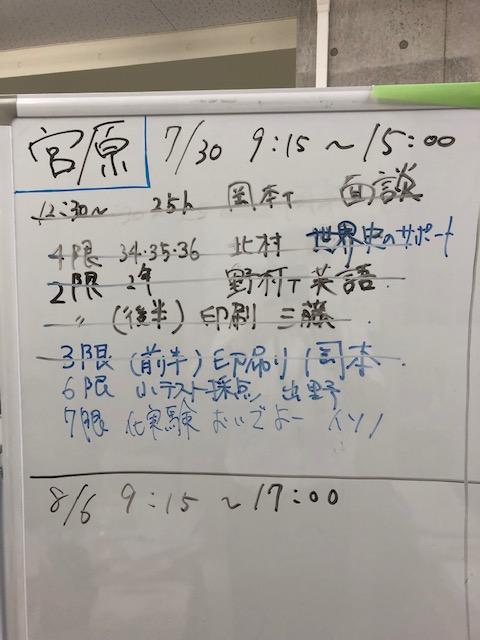 宮原 7/30 9:15 ~ 15:00
12:30~ 25h 岡本T 面談
4限 34・35・36 北村 世界史のサポート
2限 2年 野村T 英語
〃 (後半) 印刷 三藤
3限 (前半) 印刷り 岡本
6限 小テスト採点 出野
7限 化実験 おいでよー イソノ
8/6 9:15 ~17:00